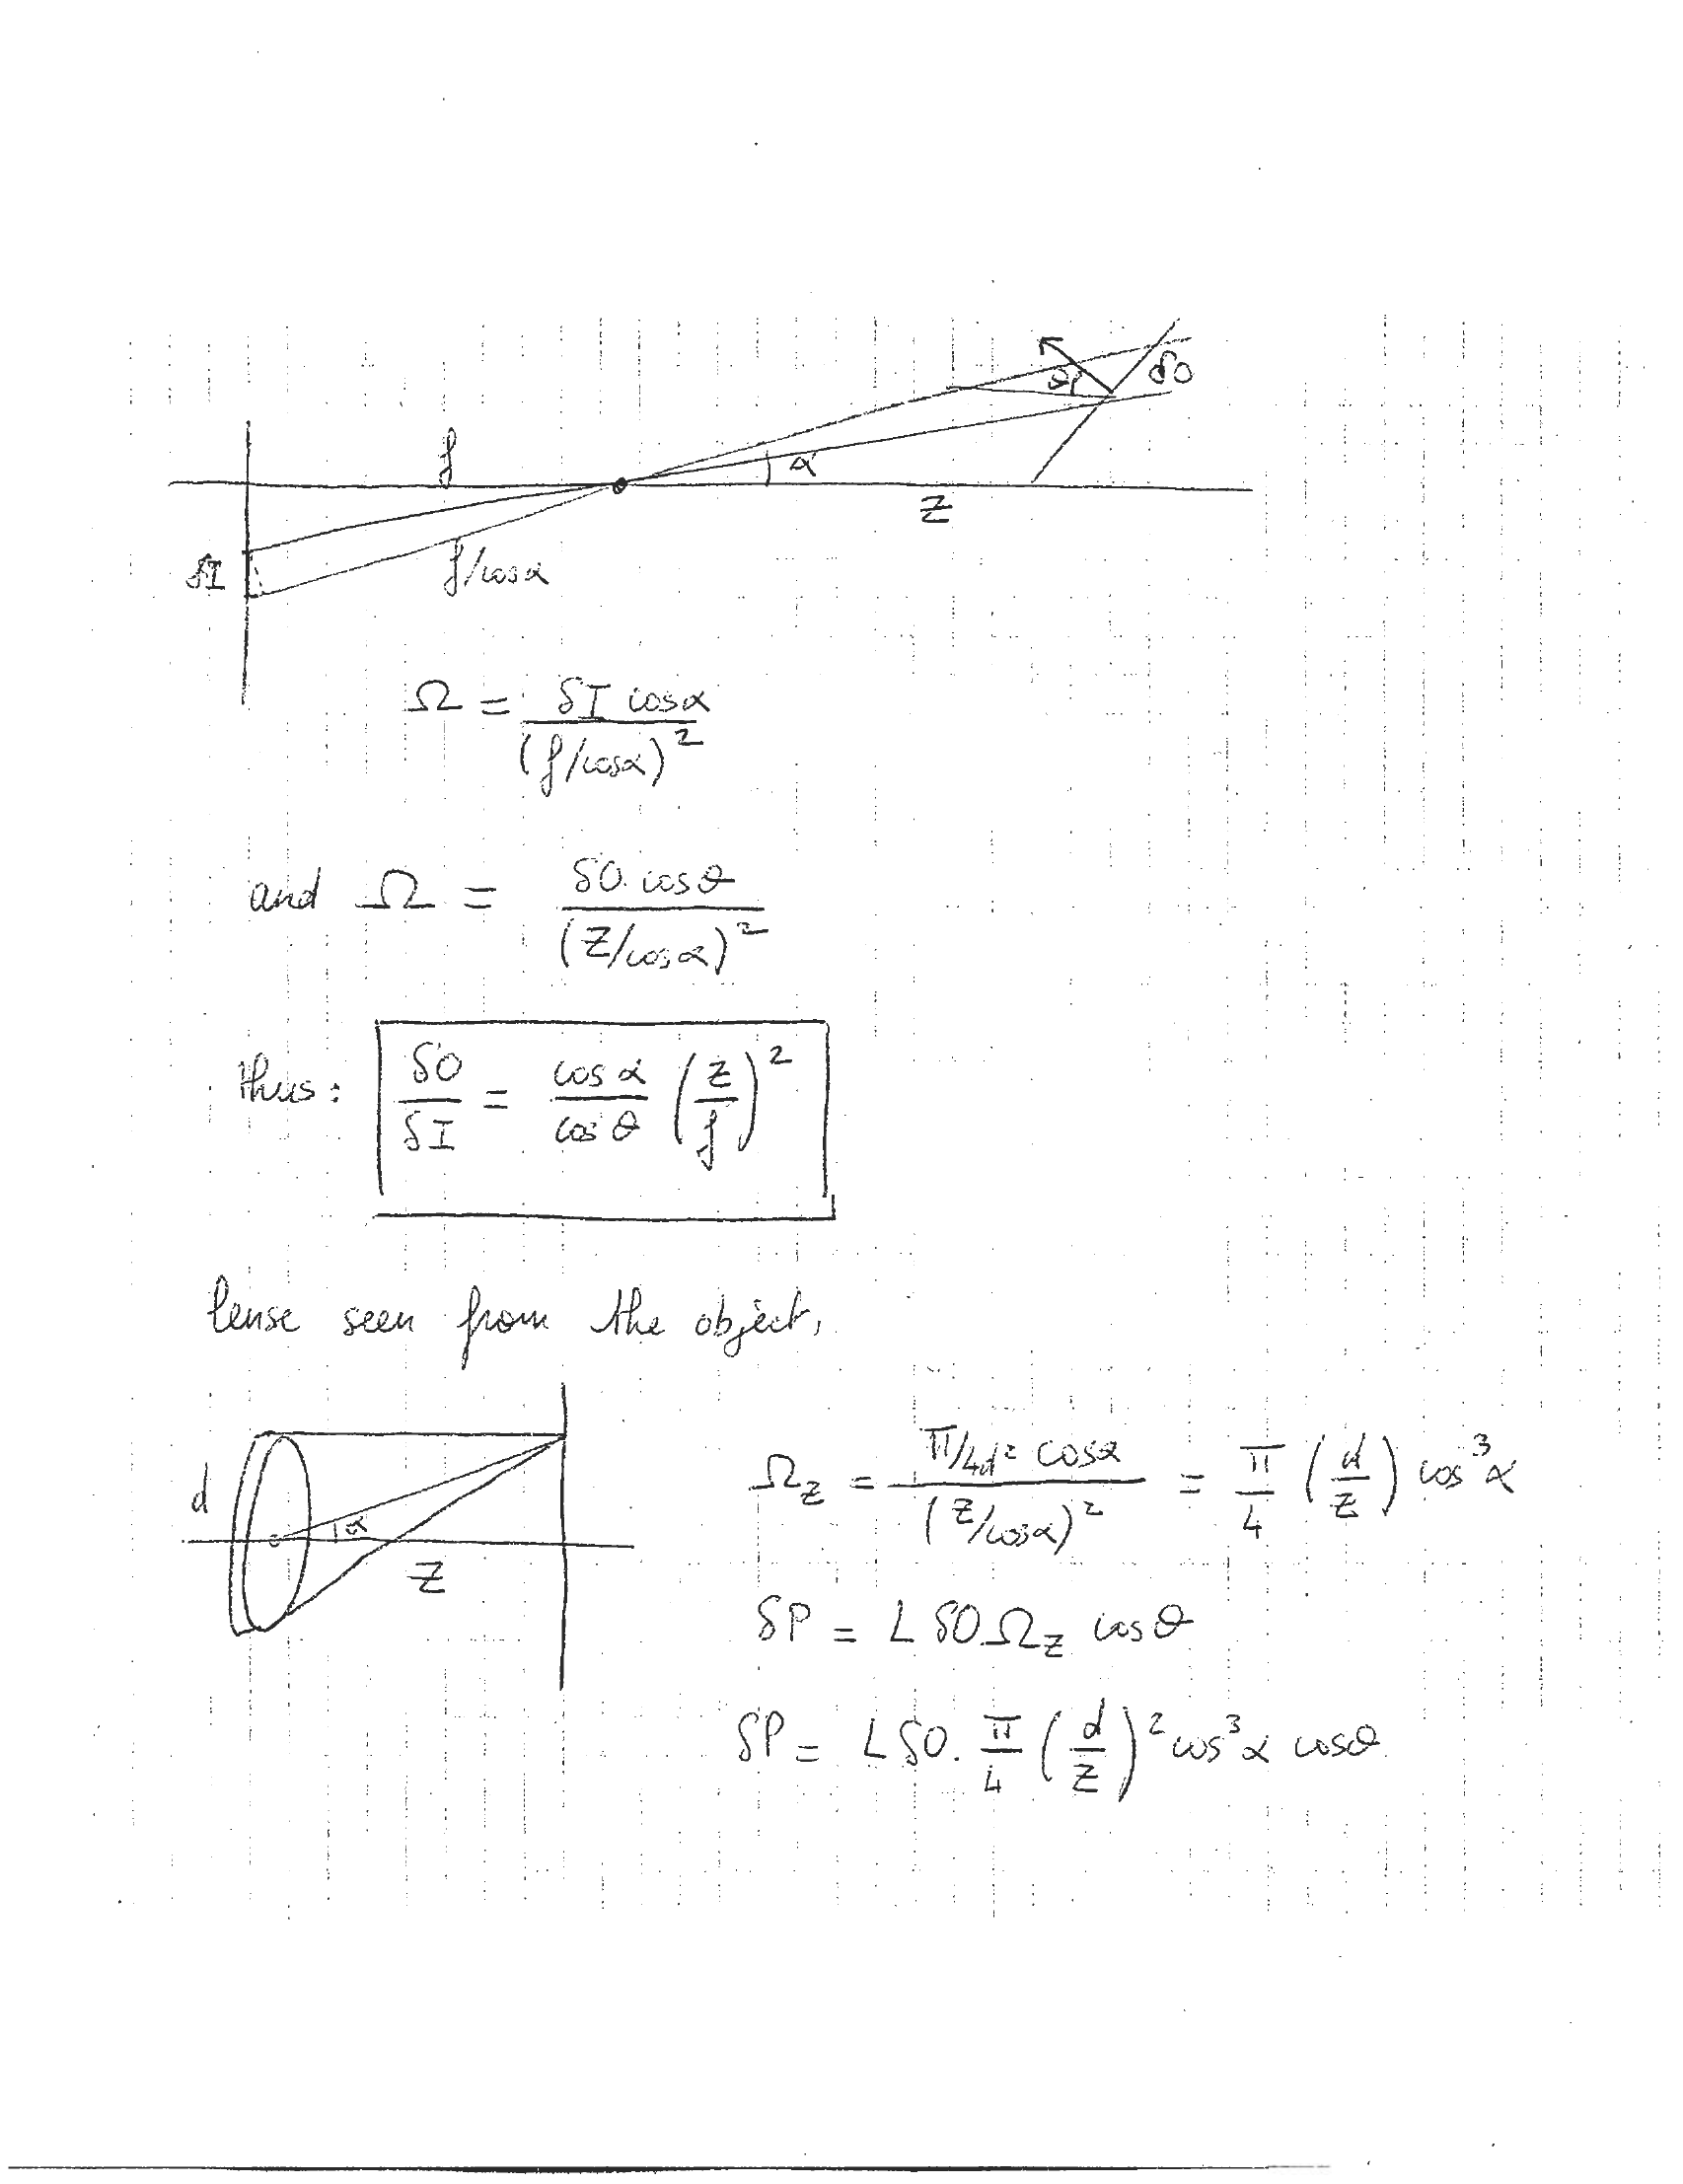 f
α
θ
δO
Z
δI
f/cosα
Ω = δI cosα / (f/cosα)²
and Ω = δO. cosθ / (Z/cosα)²
thus: δO/δI = cosα/cosθ (z/f)²
lense seen from the object,
d
α
Z
Ω_Z = π/4d² cosα / (Z/cosα)² = π/4 (d/Z) cos³α
δP = L δO.Ω_Z cosθ
δP = L δO. π/4 (d/Z)² cos³α cosθ